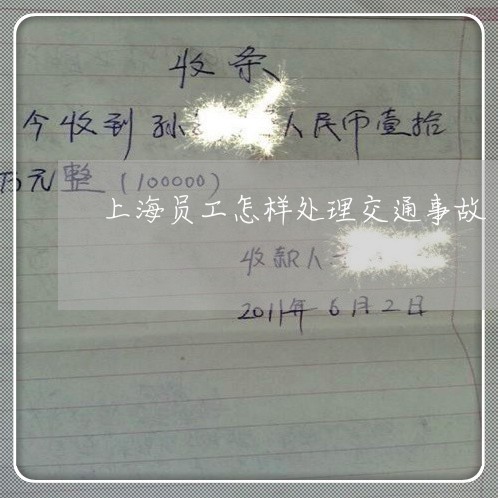 收条
今收到孙 人民币壹拾
万元整（100000）
上海员工怎样处理交通事故
收款人
2011年6月2日